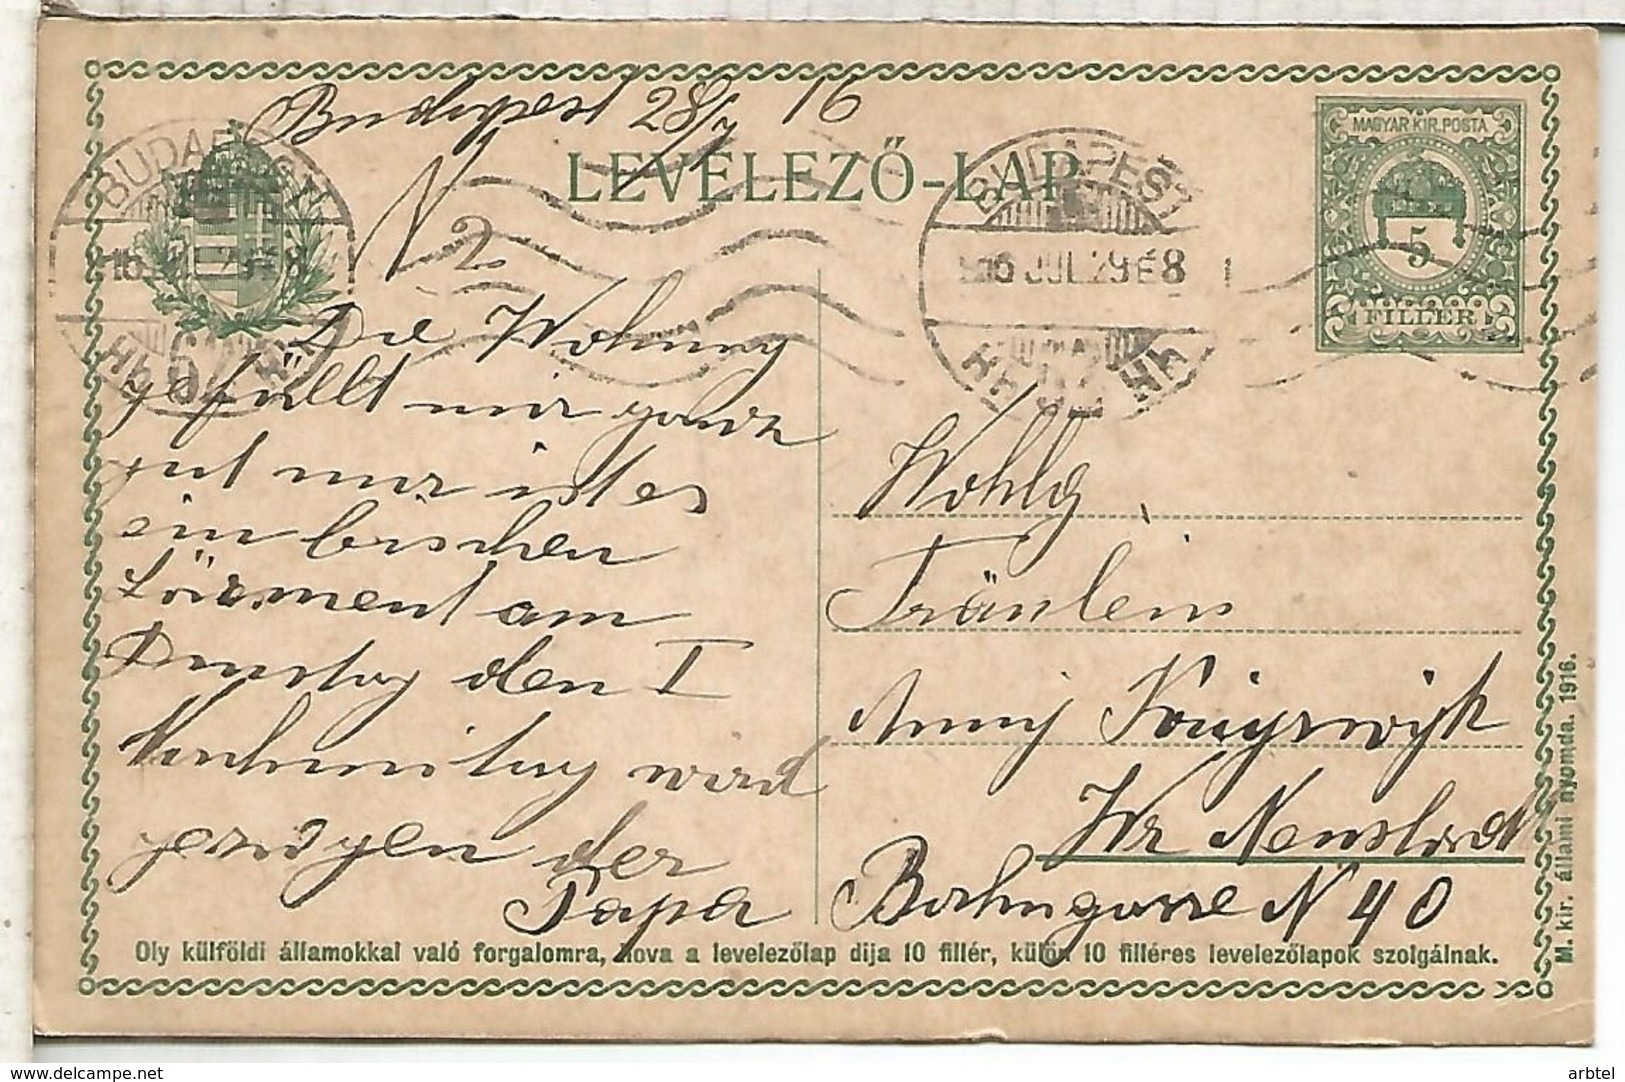 Budapest 28/7 16
LEVELEZŐ-LAP
MAGYAR KIR. POSTA
5
FILLÉR
BUDAPEST
916 JUL. 29 É 8
N 2
Die Wohnung
gefällt mir ganz
gut nur ist es
ein bischen
am
Dinstag den I
Nachmittag wird
gezogen der
Papa
Wohlg
Fräulein
Anny
Wr Neustadt
Bahngasse N 40
Oly külföldi államokkal való forgalomra, hova a levelezőlap dija 10 fillér, külön 10 filléres levelezőlapok szolgálnak.
M. kir. állami nyomda. 1916.
delcampe.net
arbtel